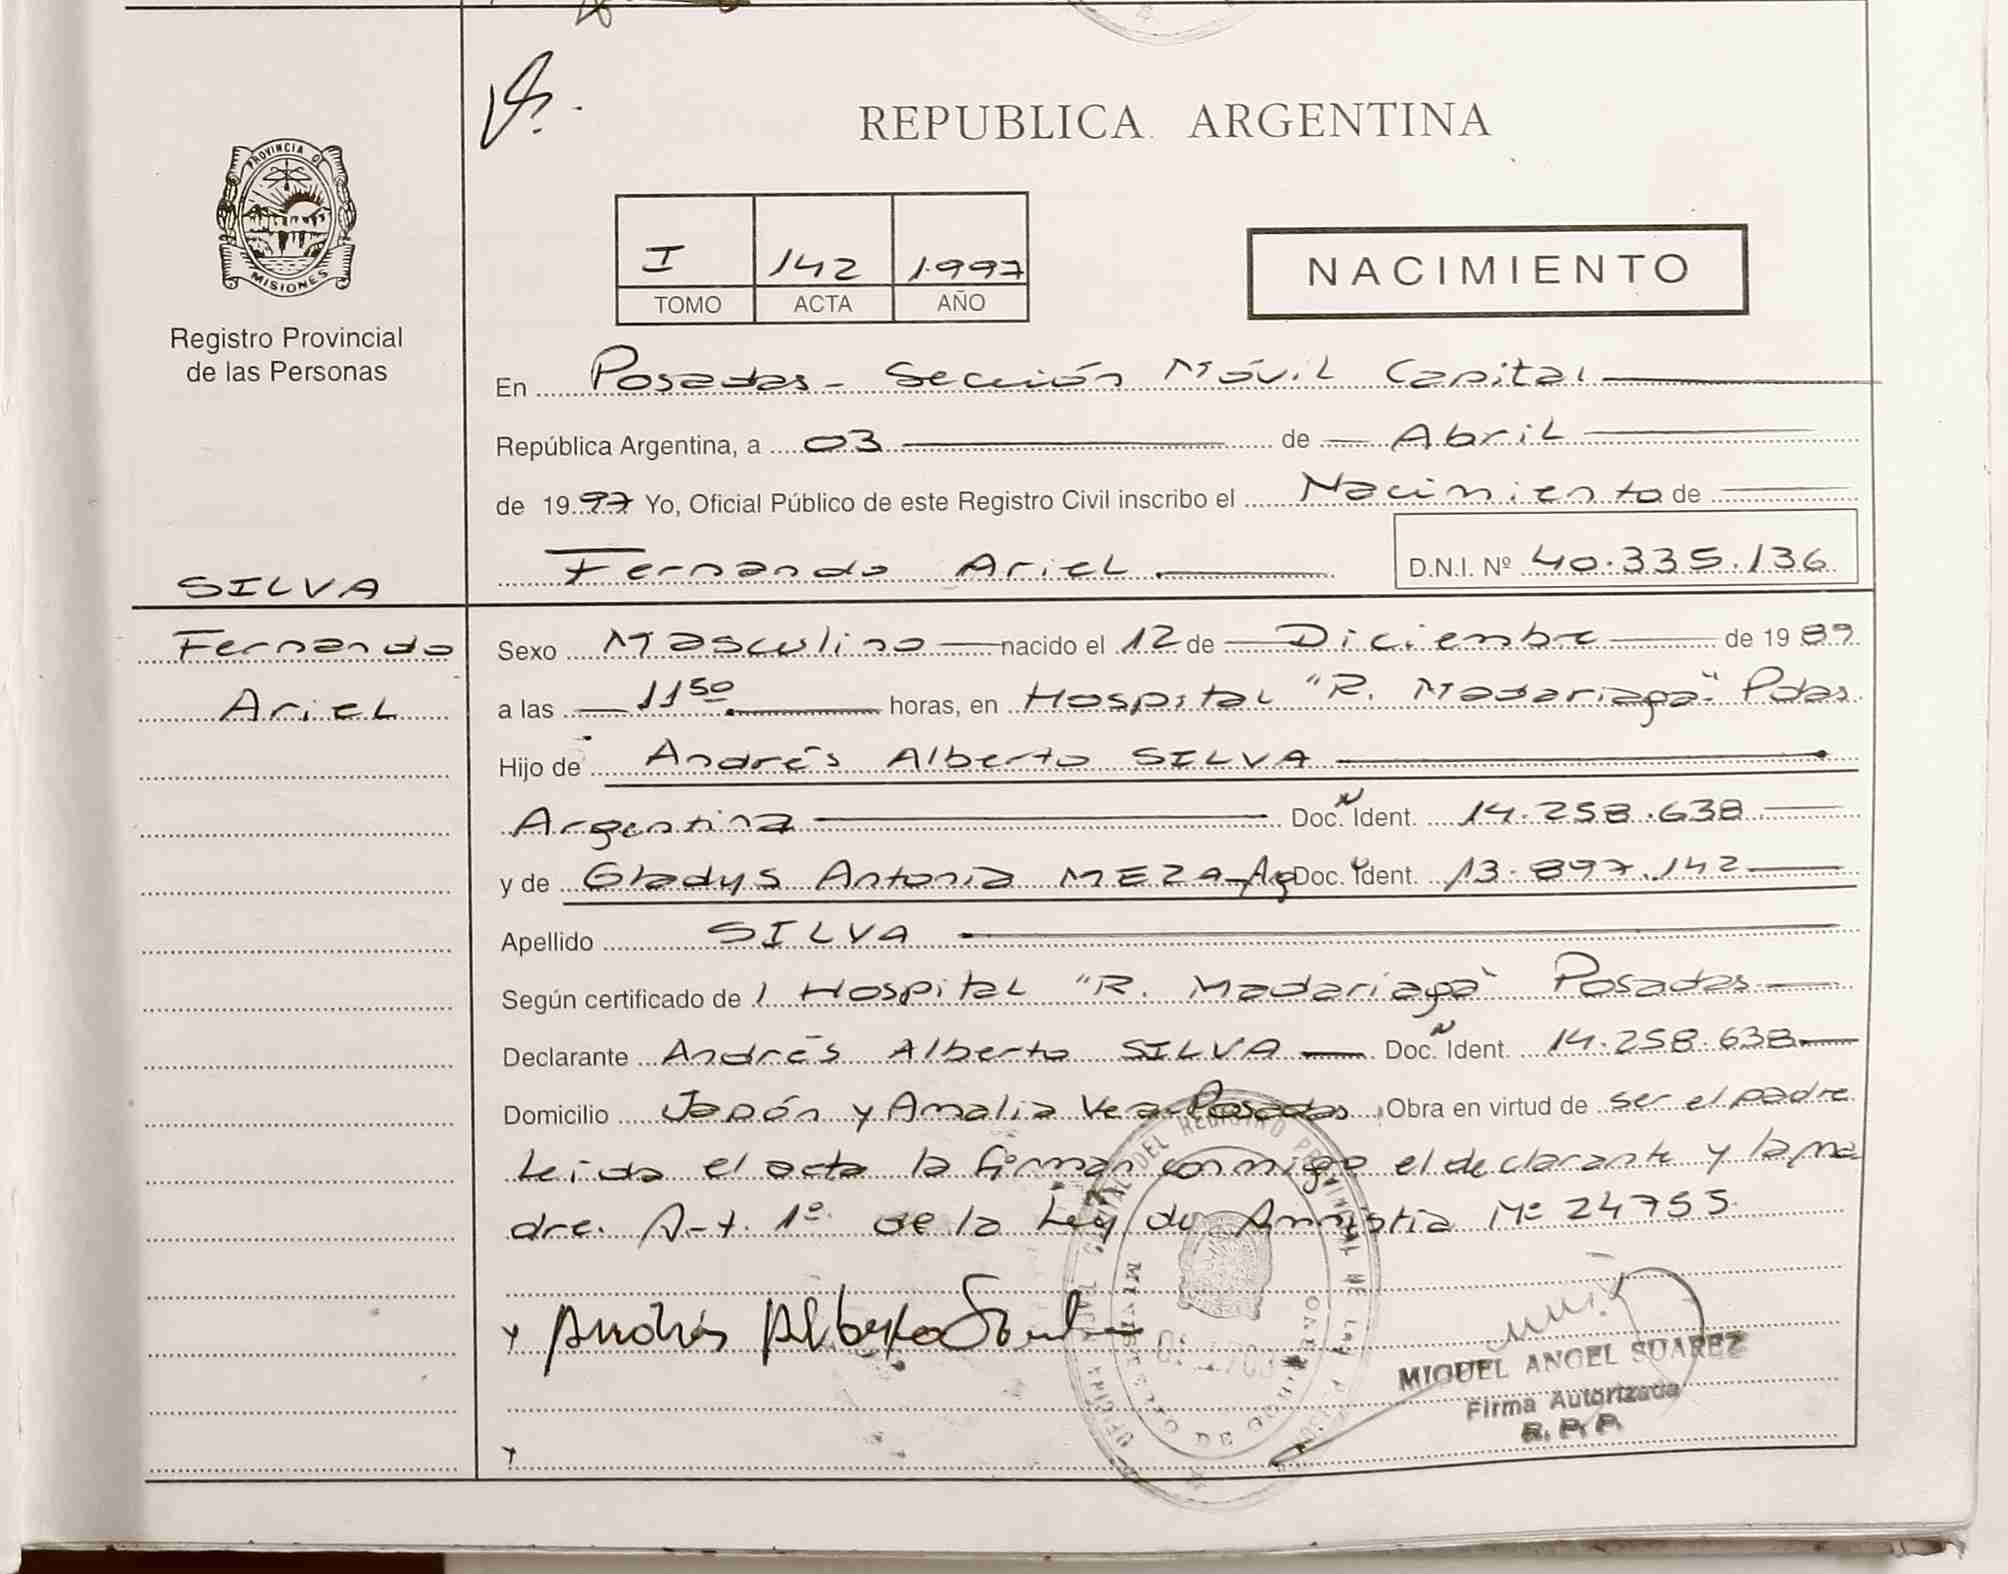 REPUBLICA ARGENTINA
PROVINCIA DE
MISIONES
Registro Provincial
de las Personas
I 142 1.997
TOMO ACTA AÑO
NACIMIENTO
En Posadas - Sección Móvil Capital
República Argentina, a 03 de Abril
de 1997 Yo, Oficial Público de este Registro Civil inscribo el Nacimiento de
Fernando Ariel D.N.I. Nº 40.335.136
SILVA
Fernando
Ariel
Sexo Masculino nacido el 12 de Diciembre de 1989
a las 11 50 horas, en Hospital "R. Madariaga" Pdas.
Hijo de Andrés Alberto SILVA
Argentina Doc. Ident. 14.258.638
y de Gladys Antonia MEZA - Ag Doc. Ident. 13.897.142
Apellido SILVA
Según certificado de l Hospital "R. Madariaga" Posadas
Declarante Andrés Alberto SILVA Doc. Ident. 14.258.638
Domicilio Japón y Amalia Vera Posadas Obra en virtud de ser el padre
Leida el acta la firman conmigo el declarante y la ma
dre. Art. 1º de la Ley de Amnistia Nº 24755.
Andrés Alberto Silva
MIGUEL ANGEL SUAREZ
Firma Autorizada
R. P. P.